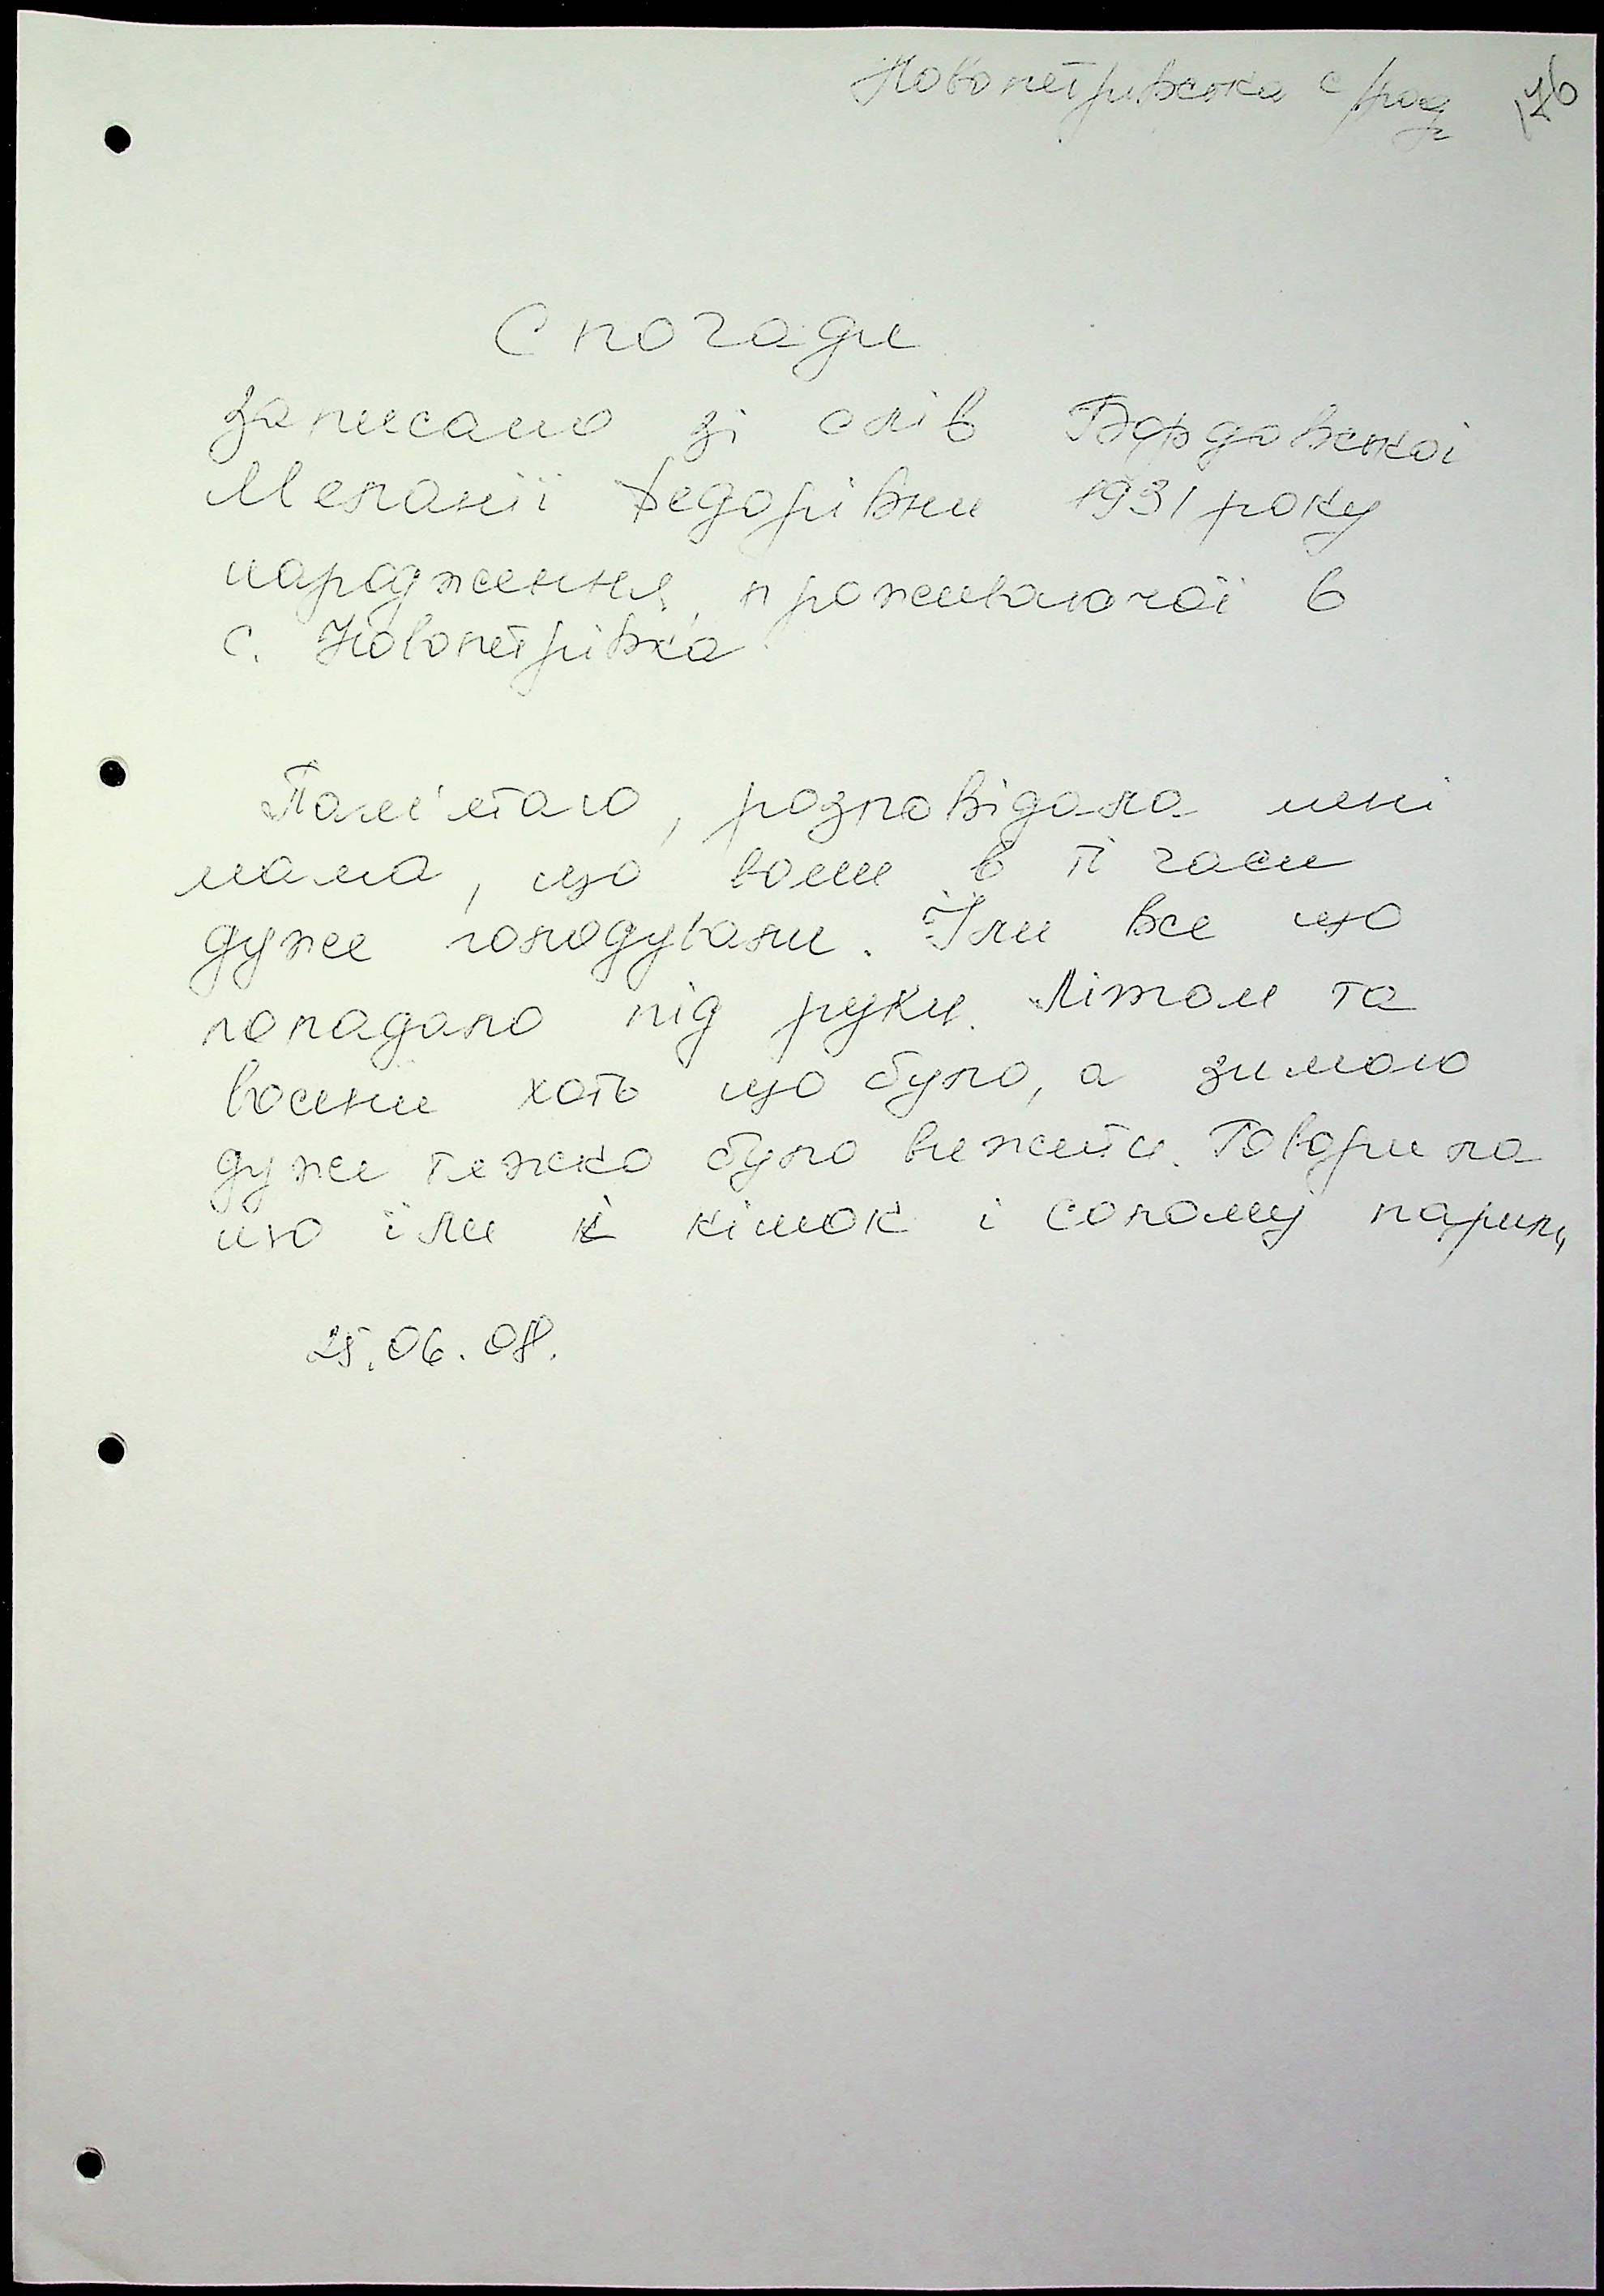 Новопетрівська с/рад
Спогади
записано зі слів Бордовської
Меланії Федорівни 1931 року
народження, проживаючої в
с. Новопетрівка
Пам'ятаю, розповідала мені
мама, що вони в ті часи
дуже голодували. Їли все що
попадало під руки. Літом та
восени хоть що було, а зимою
дуже тяжко було вижити. Говорила
що їли і кішок і солому парили
25.06.08.